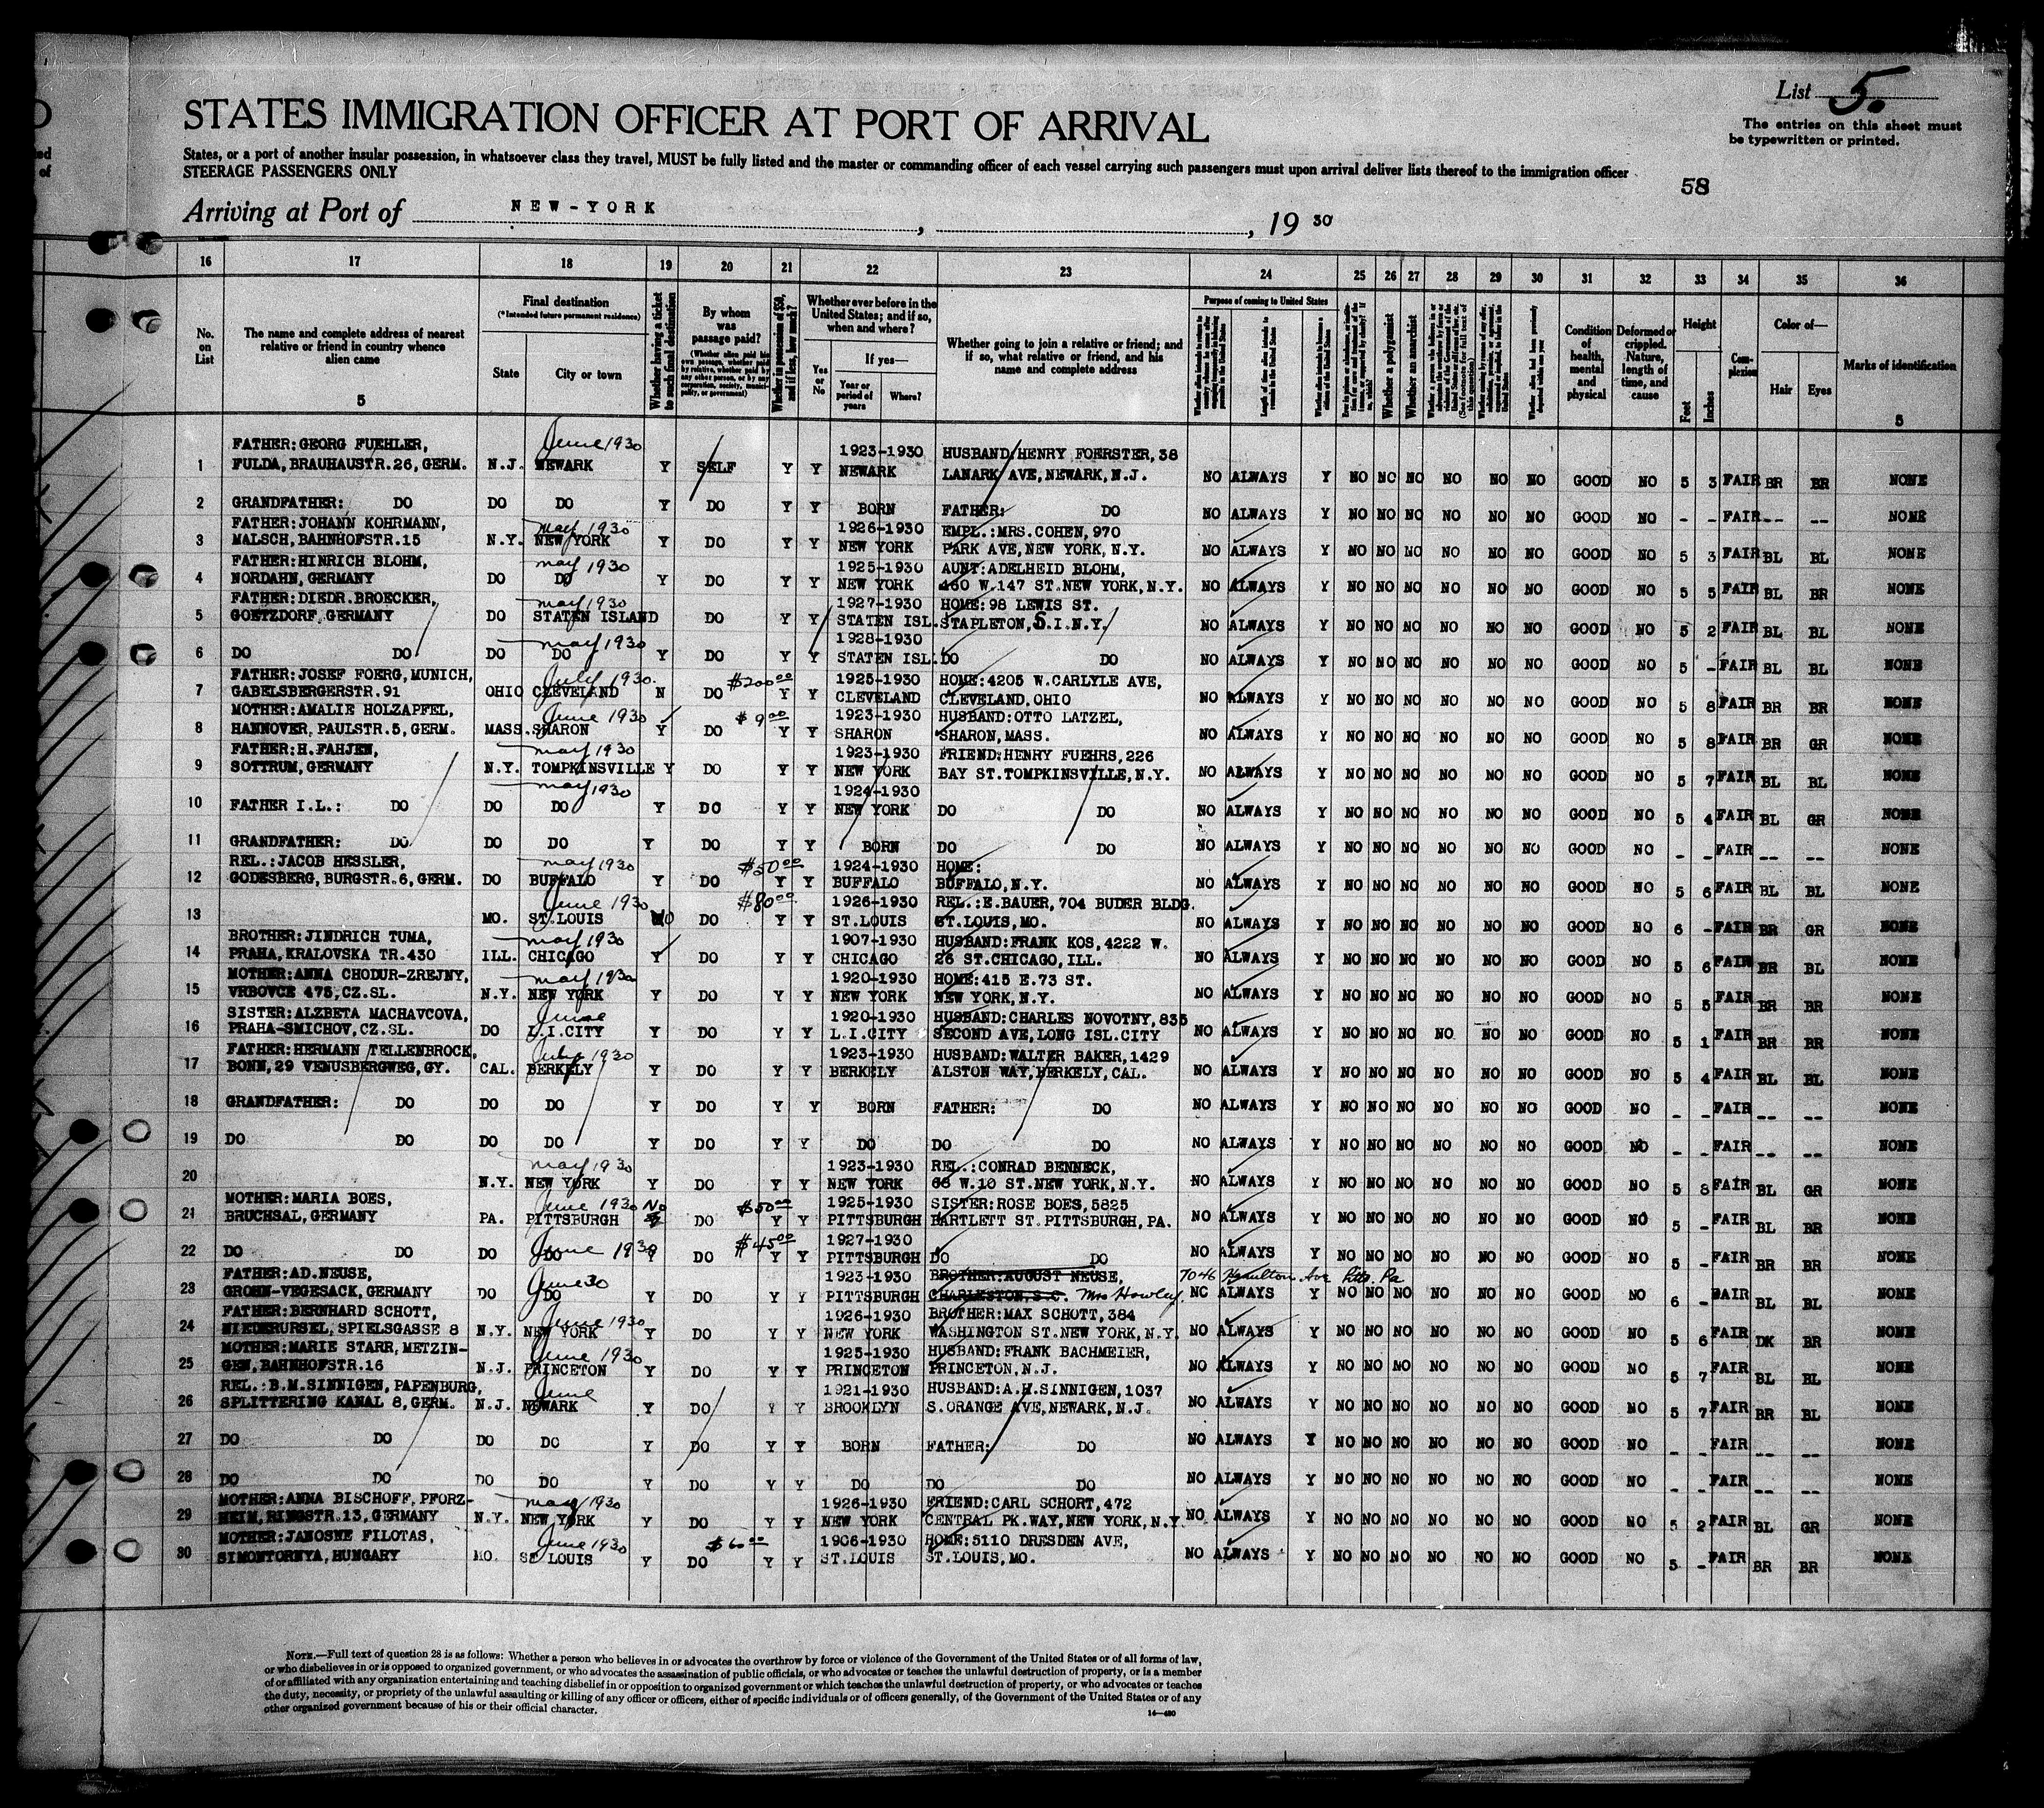 List 5.
STATES IMMIGRATION OFFICER AT PORT OF ARRIVAL
The entries on this sheet must
be typewritten or printed.
States, or a port of another insular possession, in whatsoever class they travel, MUST be fully listed and the master or commanding officer of each vessel carrying such passengers must upon arrival deliver lists thereof to the immigration officer
STEERAGE PASSENGERS ONLY
58
Arriving at Port of NEW-YORK, , 19 30
16 17 18 19 20 21 22 23 24 25 26 27 28 29 30 31 32 33 34 35 36
No. on List
The name and complete address of nearest relative or friend in country whence alien came
5
Final destination
(*Intended future permanent residence)
State City or town
Whether having a ticket to such final destination
By whom was passage paid?
(Whether alien paid his own passage, whether paid by relative, whether paid by any other person, or by any corporation, society, municipality, or government)
Whether in possession of $50, and if less, how much?
Whether ever before in the United States; and if so, when and where?
Yes or No
If yes—
Year or period of years Where?
Whether going to join a relative or friend; and if so, what relative or friend, and his name and complete address
Purpose of coming to United States
Length of time alien intends to remain in the United States
Whether a polygamist
Whether an anarchist
Condition of health, mental and physical
Deformed or crippled. Nature, length of time, and cause
Height
Feet Inches
Complexion
Color of—
Hair Eyes
Marks of identification
5
FATHER:GEORG FUEHLER, June 1930 1923-1930 HUSBAND:HENRY FOERSTER,38
1 FULDA,BRAUHAUSTR.26,GERM. N.J. NEWARK Y SELF Y Y NEWARK LANARK AVE,NEWARK,N.J. NO ALWAYS Y NO NO NO NO NO NO GOOD NO 5 3 FAIR BR BR NONE
2 GRANDFATHER: DO DO DO Y DO Y Y BORN FATHER: DO NO ALWAYS Y NO NO NO NO NO NO GOOD NO - - FAIR -- -- NONE
FATHER:JOHANN KOHRMANN, may 1930 1926-1930 EMPL.:MRS.COHEN,970
3 MALSCH,BAHNHOFSTR.15 N.Y. NEW YORK Y DO Y Y NEW YORK PARK AVE,NEW YORK,N.Y. NO ALWAYS Y NO NO NO NO NO NO GOOD NO 5 3 FAIR BL BL NONE
FATHER:HINRICH BLOHM, may 1930 1925-1930 AUNT:ADELHEID BLOHM,
4 NORDAHN,GERMANY DO DO Y DO Y Y NEW YORK 460 W.147 ST.NEW YORK,N.Y. NO ALWAYS Y NO NO NO NO NO NO GOOD NO 5 5 FAIR BL BR NONE
FATHER:DIEDR.BROECKER, may 1930 1927-1930 HOME:98 LEWIS ST.
5 GOETZDORF,GERMANY DO STATEN ISLAND DO Y Y STATEN ISL. STAPLETON,S.I.N.Y. NO ALWAYS Y NO NO NO NO NO NO GOOD NO 5 2 FAIR BL BL NONE
may 1930 1928-1930
6 DO DO DO DO Y DO Y Y STATEN ISL. DO DO NO ALWAYS Y NO NO NO NO NO NO GOOD NO 5 - FAIR BL BL NONE
FATHER:JOSEF FOERG,MUNICH, July 1930. $200.00 1925-1930 HOME:4205 W.CARLYLE AVE,
7 GABELSBERGERSTR.91 OHIO CLEVELAND N DO Y Y CLEVELAND CLEVELAND.OHIO NO ALWAYS Y NO NO NO NO NO NO GOOD NO 5 8 FAIR BR BR NONE
MOTHER:AMALIE HOLZAPFEL, June 1930 $9.00 1923-1930 HUSBAND:OTTO LATZEL,
8 HANNOVER,PAULSTR.5,GERM. MASS. SHARON Y DO Y Y SHARON SHARON,MASS. NO ALWAYS Y NO NO NO NO NO NO GOOD NO 5 8 FAIR BR GR NONE
FATHER:H.FAHJEN, may 1930 1923-1930 FRIEND:HENRY FUEHRS,226
9 SOTTRUM,GERMANY N.Y. TOMPKINSVILLE Y DO Y Y NEW YORK BAY ST.TOMPKINSVILLE,N.Y. NO ALWAYS Y NO NO NO NO NO NO GOOD NO 5 7 FAIR BL BL NONE
may 1930 1924-1930
10 FATHER I.L.: DO DO DO Y DO Y Y NEW YORK DO DO NO ALWAYS Y NO NO NO NO NO NO GOOD NO 5 4 FAIR BL GR NONE
11 GRANDFATHER: DO DO DO Y DO Y Y BORN DO DO NO ALWAYS Y NO NO NO NO NO NO GOOD NO - - FAIR -- -- NONE
REL.:JACOB HESSLER, may 1930 $50.00 1924-1930 HOME:
12 GODESBERG,BURGSTR.6,GERM. DO BUFFALO Y DO Y Y BUFFALO BUFFALO,N.Y. NO ALWAYS Y NO NO NO NO NO NO GOOD NO 5 6 FAIR BL BL NONE
June 1930 $80.00 1926-1930 REL.:E.BAUER,704 BUDER BLDG.
13 MO. ST.LOUIS NO DO Y Y ST.LOUIS ST.LOUIS,MO. NO ALWAYS Y NO NO NO NO NO NO GOOD NO 6 - FAIR BR GR NONE
BROTHER:JINDRICH TUMA, may 1930 1907-1930 HUSBAND:FRANK KOS,4222 W.
14 PRAHA,KRALOVSKA TR.430 ILL. CHICAGO Y DO Y Y CHICAGO 26 ST.CHICAGO,ILL. NO ALWAYS Y NO NO NO NO NO NO GOOD NO 5 6 FAIR BR BL NONE
MOTHER:ANNA CHODUR-ZREJNY, may 1930 1920-1930 HOME:415 E.73 ST.
15 VRBOVCE 475,CZ.SL. N.Y. NEW YORK Y DO Y Y NEW YORK NEW YORK,N.Y. NO ALWAYS Y NO NO NO NO NO NO GOOD NO 5 5 FAIR BR BR NONE
SISTER:ALZBETA MACHAVCOVA, June 1920-1930 HUSBAND:CHARLES NOVOTNY,835
16 PRAHA-SMICHOV,CZ.SL. DO L.I.CITY Y DO Y Y L.I.CITY SECOND AVE,LONG ISL.CITY NO ALWAYS Y NO NO NO NO NO NO GOOD NO 5 1 FAIR BR BR NONE
FATHER:HERMANN TELLENBROCK, July 1930 1923-1930 HUSBAND:WALTER BAKER,1429
17 BONN,29 VENUSBERGWEG,GY. CAL. BERKELY Y DO Y Y BERKELY ALSTON WAY,BERKELY,CAL. NO ALWAYS Y NO NO NO NO NO NO GOOD NO 5 4 FAIR BL BL NONE
18 GRANDFATHER: DO DO DO Y DO Y Y BORN FATHER: DO NO ALWAYS Y NO NO NO NO NO NO GOOD NO - - FAIR -- -- NONE
19 DO DO DO DO Y DO Y Y DO DO DO NO ALWAYS Y NO NO NO NO NO NO GOOD NO - - FAIR -- -- NONE
may 1930 1923-1930 REL.:CONRAD BENNECK,
20 N.Y. NEW YORK Y DO Y Y NEW YORK 68 W.10 ST.NEW YORK,N.Y. NO ALWAYS Y NO NO NO NO NO NO GOOD NO 5 8 FAIR BL GR NONE
MOTHER:MARIA BOES, June 1930 No $50.00 1925-1930 SISTER:ROSE BOES,5825
21 BRUCHSAL,GERMANY PA. PITTSBURGH DO Y Y PITTSBURGH BARTLETT ST.PITTSBURGH,PA. NO ALWAYS Y NO NO NO NO NO NO GOOD NO 5 - FAIR BL BR NONE
June 1930 $45.00 1927-1930
22 DO DO DO DO Y DO Y Y PITTSBURGH DO DO NO ALWAYS Y NO NO NO NO NO NO GOOD NO 5 - FAIR BR BR NONE
FATHER:AD.NEUSE, June 30 1923-1930 BROTHER:AUGUST NEUSE, 7046 Hamilton Ave Pitts. Pa
23 GROHN-VEGESACK,GERMANY DO DO Y DO Y Y PITTSBURGH CHARLESTON,S.C. Mrs Howley. NO ALWAYS Y NO NO NO NO NO NO GOOD NO 6 - FAIR BL BL NONE
FATHER:BERNHARD SCHOTT, June 1930 1926-1930 BROTHER:MAX SCHOTT,384
24 NIEDERURSEL,SPIELSGASSE 8 N.Y. NEW YORK Y DO Y Y NEW YORK WASHINGTON ST.NEW YORK,N.Y. NO ALWAYS Y NO NO NO NO NO NO GOOD NO 5 6 FAIR DK BR NONE
MOTHER:MARIE STARR,METZIN- June 1930 1925-1930 HUSBAND:FRANK BACHMEIER,
25 GEN,BAHNHOFSTR.16 N.J. PRINCETON Y DO Y Y PRINCETON PRINCETON,N.J. NO ALWAYS Y NO NO NO NO NO NO GOOD NO 5 7 FAIR BL BL NONE
REL.:B.M.SINNIGEN,PAPENBURG, June 1921-1930 HUSBAND:A.H.SINNIGEN,1037
26 SPLITTERING KANAL 8,GERM. N.J. NEWARK Y DO Y Y BROOKLYN S.ORANGE AVE,NEWARK,N.J. NO ALWAYS Y NO NO NO NO NO NO GOOD NO 5 7 FAIR BR BL NONE
27 DO DO DO DO Y DO Y Y BORN FATHER: DO NO ALWAYS Y NO NO NO NO NO NO GOOD NO - - FAIR -- -- NONE
28 DO DO DO DO Y DO Y Y DO DO DO NO ALWAYS Y NO NO NO NO NO NO GOOD NO - - FAIR -- -- NONE
MOTHER:ANNA BISCHOFF,PFORZ- may 1930 1926-1930 FRIEND:CARL SCHORT,472
29 HEIM,RINGSTR.13,GERMANY N.Y. NEW YORK Y DO Y Y NEW YORK CENTRAL PK.WAY,NEW YORK,N.Y. NO ALWAYS Y NO NO NO NO NO NO GOOD NO 5 2 FAIR BL GR NONE
MOTHER:JANOSNE FILOTAS, June 1930 $60.00 1906-1930 HOME:5110 DRESDEN AVE,
30 SIMONTORNYA,HUNGARY MO. ST LOUIS Y DO Y Y ST.LOUIS ST.LOUIS,MO. NO ALWAYS Y NO NO NO NO NO NO GOOD NO 5 - FAIR BR BR NONE
NOTE.—Full text of question 28 is as follows: Whether a person who believes in or advocates the overthrow by force or violence of the Government of the United States or of all forms of law,
or who disbelieves in or is opposed to organized government, or who advocates the assassination of public officials, or who advocates or teaches the unlawful destruction of property, or is a member
of or affiliated with any organization entertaining and teaching disbelief in or opposition to organized government or which teaches the unlawful destruction of property, or who advocates or teaches
the duty, necessity, or propriety of the unlawful assaulting or killing of any officer or officers, either of specific individuals or of officers generally, of the Government of the United States or of any
other organized government because of his or their official character.
14—480